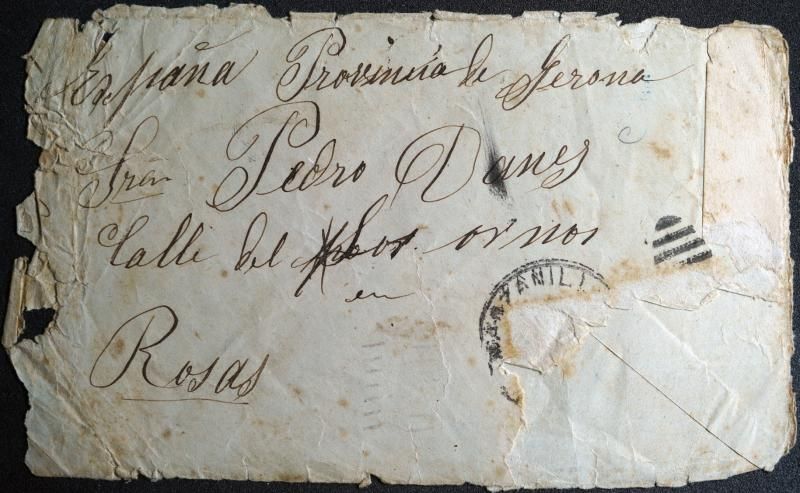 España Provincia de Gerona
Sran Pedro Danes
Calle del los ornos
en
Rosas
MANZANILL